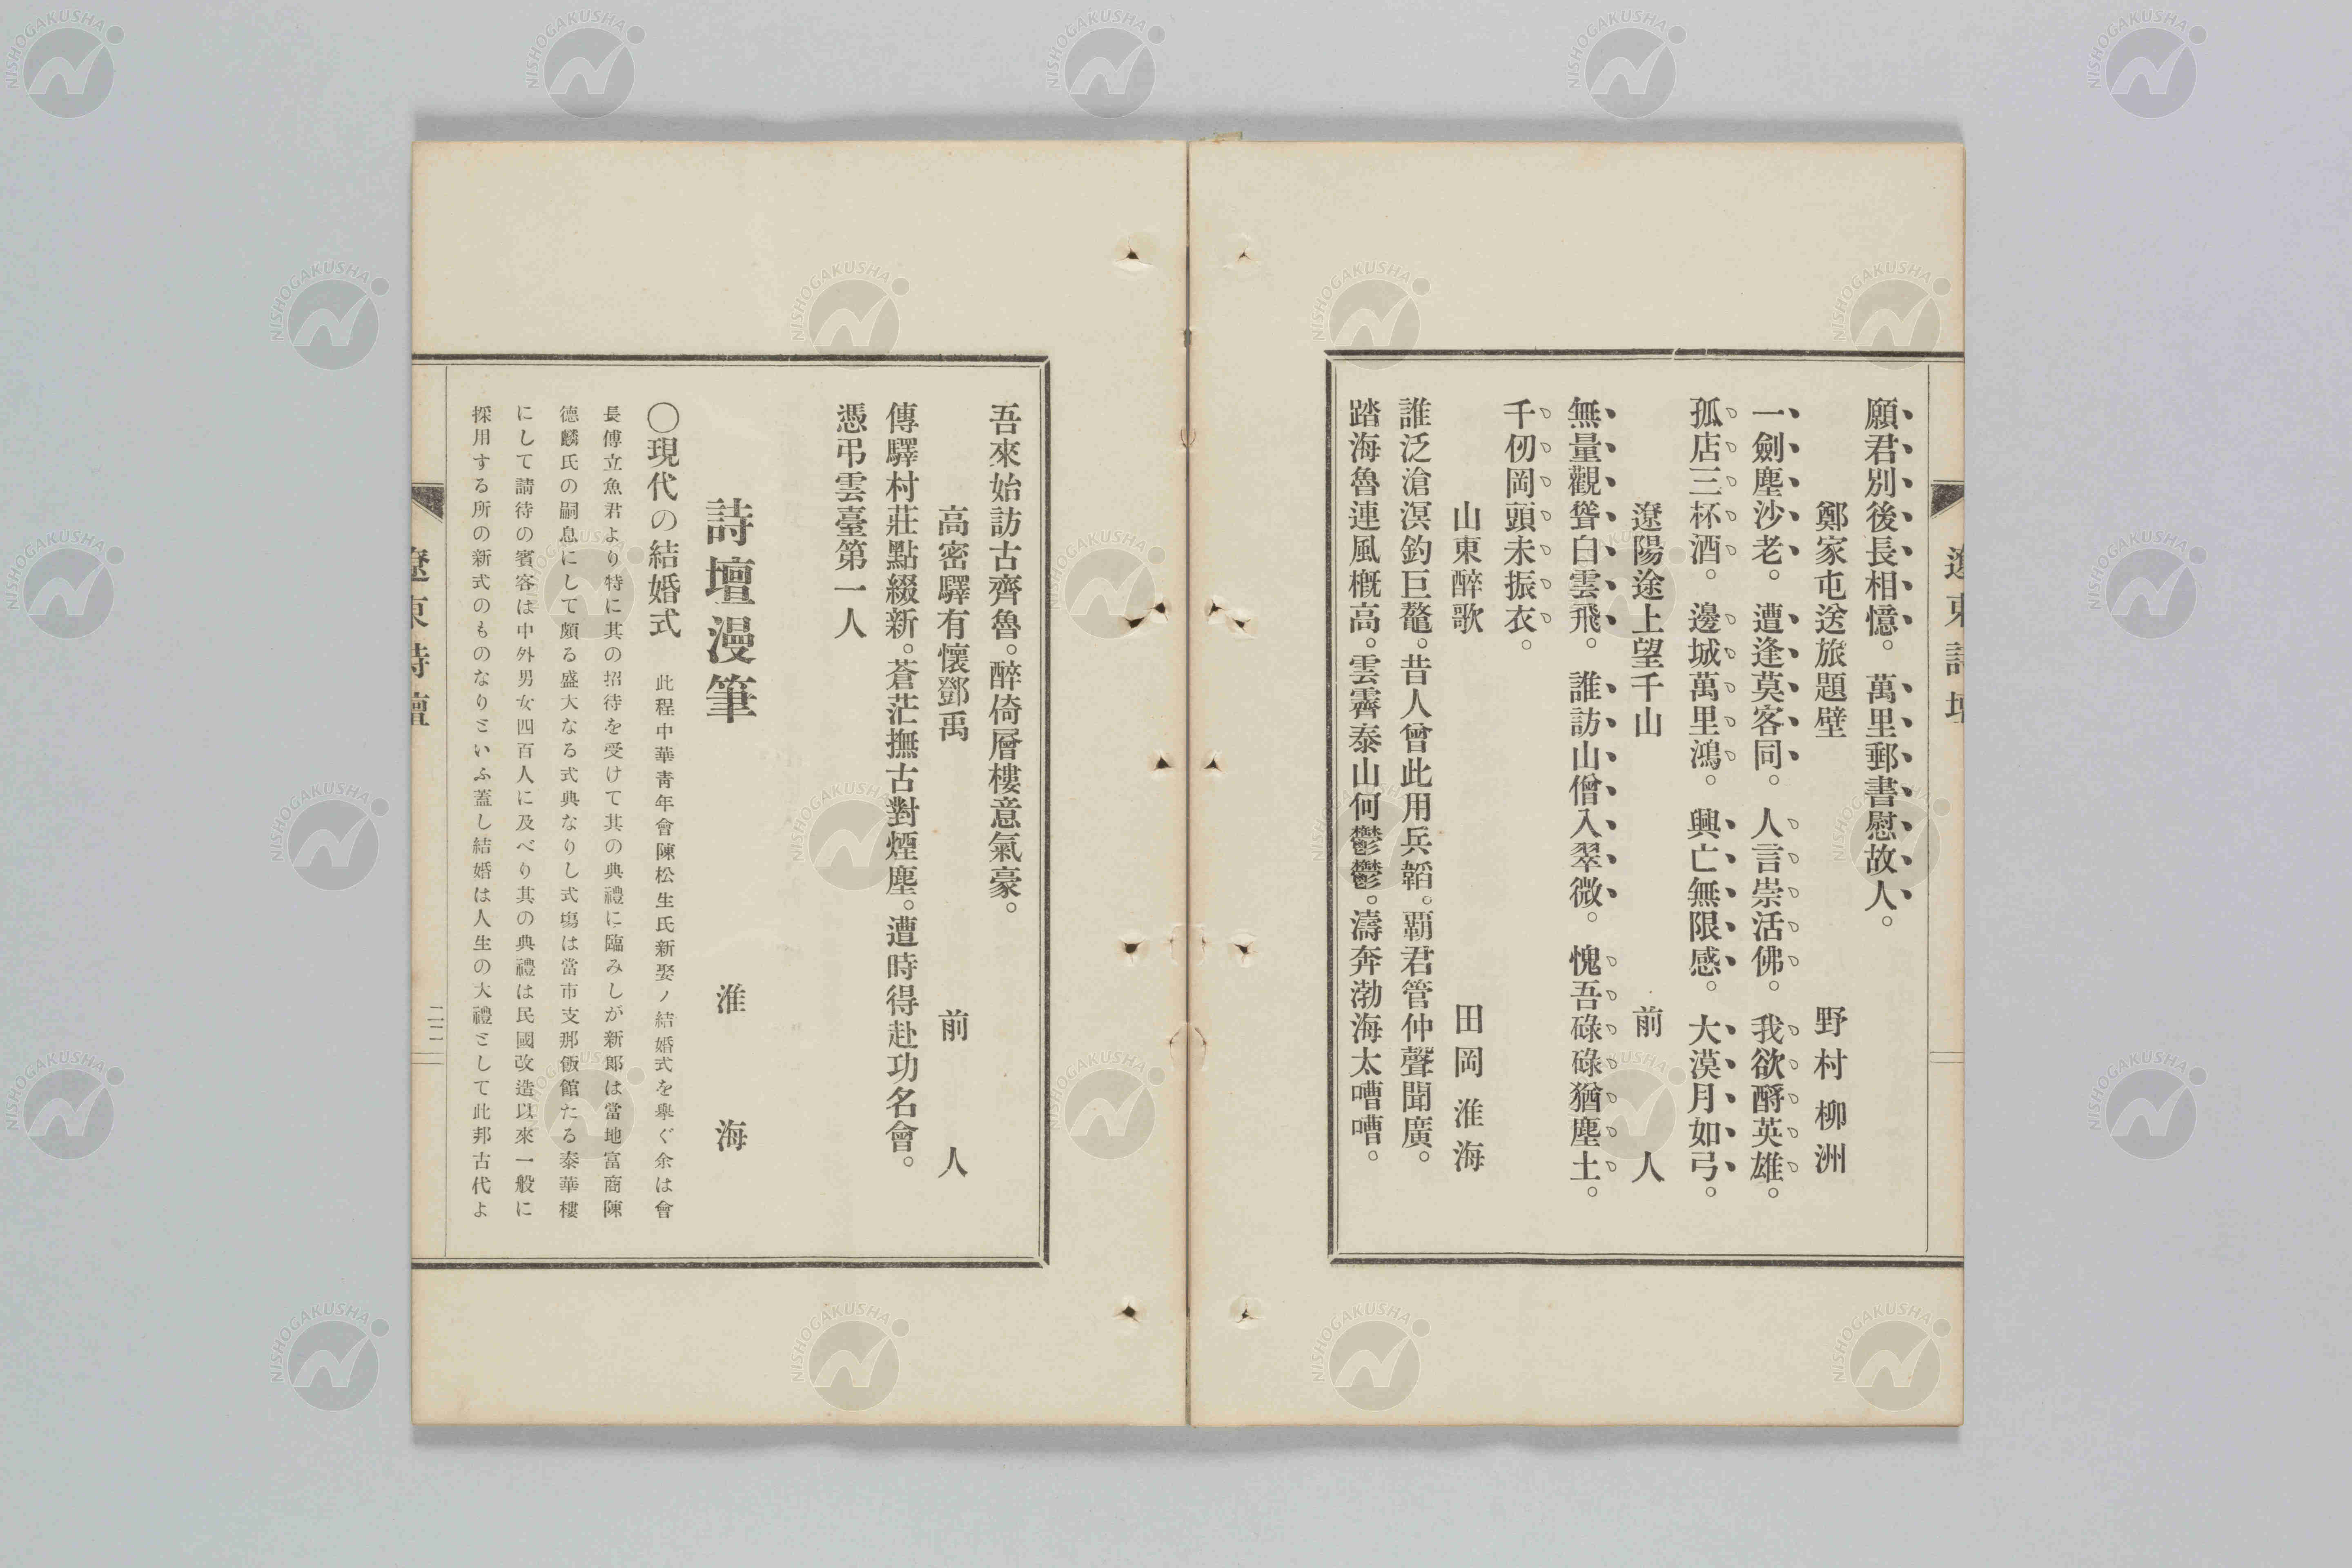 願君別後長相憶。萬里郵書慰故人。
鄭家屯送旅題壁　野村柳洲
一劍塵沙老。遭逢莫客同。人言崇活佛。我欲酹英雄。
孤店三杯酒。邊城萬里鴻。興亡無限感。大漠月如弓。
遼陽途上望千山　前人
無量觀聳白雲飛。誰訪山僧入翠微。愧吾碌碌猶塵土。
千仞岡頭未振衣。
山東醉歌　田岡淮海
誰泛滄溟釣巨鼇。昔人曾此用兵韜。覇君管仲聲聞廣。
踏海魯連風概高。雲霽泰山何鬱鬱。濤奔渤海太嘈嘈。
遼東詩壇
吾來始訪古齊魯。醉倚層樓意氣豪。
高密驛有懷鄧禹　前人
傳驛村莊點綴新。蒼茫撫古對煙塵。遭時得赴功名會。
憑弔雲臺第一人
詩壇漫筆　淮海
〇現代の結婚式　此程中華青年會陳松生氏新娶ノ結婚式を舉ぐ余は會
長傅立魚君より特に其の招待を受けて其の典禮に臨みしが新郎は當地富商陳
德麟氏の嗣息にして頗る盛大なる式典なりし式場は當市支那飯館たる泰華樓
にして請待の賓客は中外男女四百人に及べり其の典禮は民國改造以來一般に
採用する所の新式のものなりといふ蓋し結婚は人生の大禮として此邦古代よ
遼東詩壇
二二
NISHOGAKUSHA